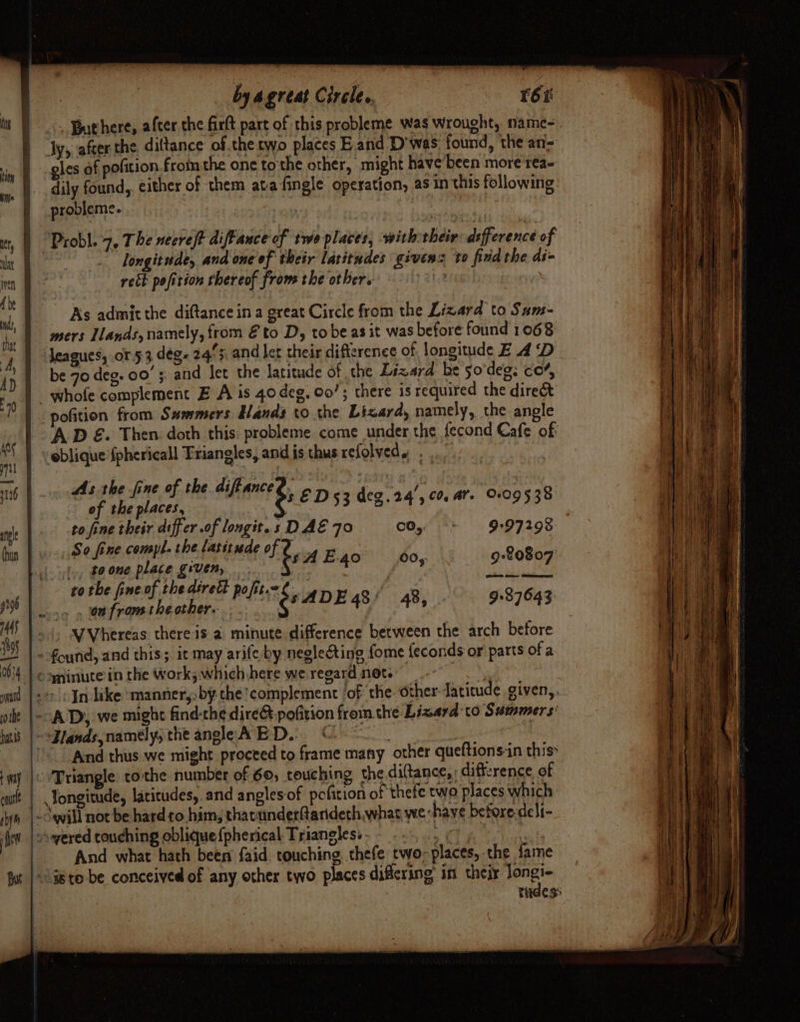 by a great Circle. 161
But here, after the firſt part of this probleme was wrought, name-
ly, after the diſtance of the two places E and D was found, the an-
gles of poſition from the one to the other, might have been more rea-
dily found, either of them at a ſingle operation, as in this following
probleme.
Probl. 7. The neereſt diſtance of two places, with their difference of
longitude, and one of their latitudes given: to find the di-
rect poſition thereof from the other.
As admit the diſtance in a great Circle from the Lizard to Sum-
mers Ilands, namely, from E to D, to be as it was before found 1068
leagues, or 53 deg. 24'; and let their difference of longitude E A D
be 70 deg. 00'; and let the latitude of the Lizard be 50 deg. 00',
whoſe complement E A is 40 deg. 00'; there is required the direct
poſition from Summers Ilands to the Lizard, namely, the angle
A D E. Then doth this probleme come under the ſecond Caſe of
oblique ſphericall Triangles, and is thus reſolved.
As the ſine of the diſtance
of the places, } s E D 53 deg. 24', co. ar. 0.09538
to ſine their differ. of longit. s D A E 70 00, 9.97298
So ſine compl. the latitude of
to one place given, } s A E 40 00, 9.80807
to the ſine of the direct poſit.-
on from the other. } s A D E 48 48, 9.87643
VVhereas there is a minute difference between the arch before
found, and this; it may ariſe by neglecting ſome ſeconds or parts of a
minute in the work, which here we regard not.
In like manner, by the complement of the other latitude given,
A D, we might find the direct poſition from the Lizard to Summers
Ilands, namely, the angle A E D.
And thus we might proceed to frame many other queſtions in this
Triangle to the number of 60, touching the diſtance, difference of
longitude, latitudes, and angles of poſition of theſe two places which
will not be hard to him, that underſtandeth what we have before deli-
vered touching oblique ſpherical Triangles.
And what hath been ſaid touching theſe two places, the ſame
is to be conceived of any other two places differing in their longi-
tudes